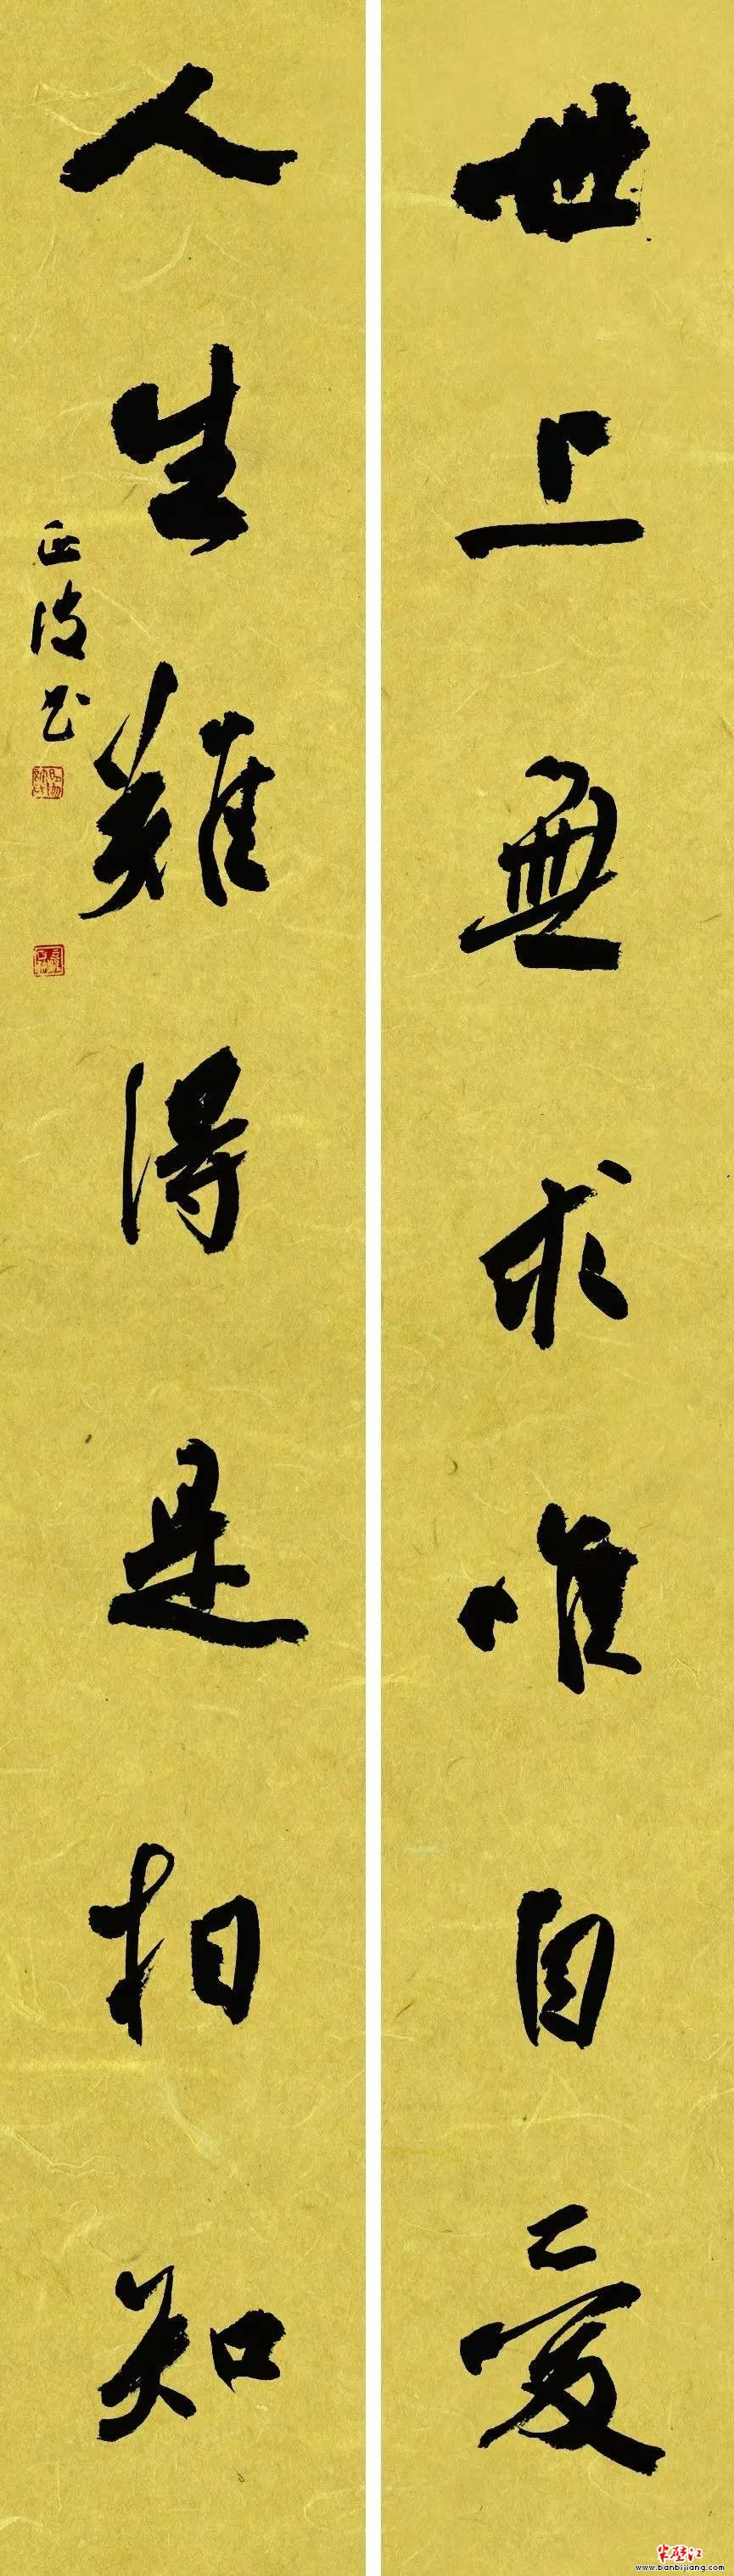 世上無求唯自愛
人生難得是相知
正波书
半壁江
www.banbijiang.com